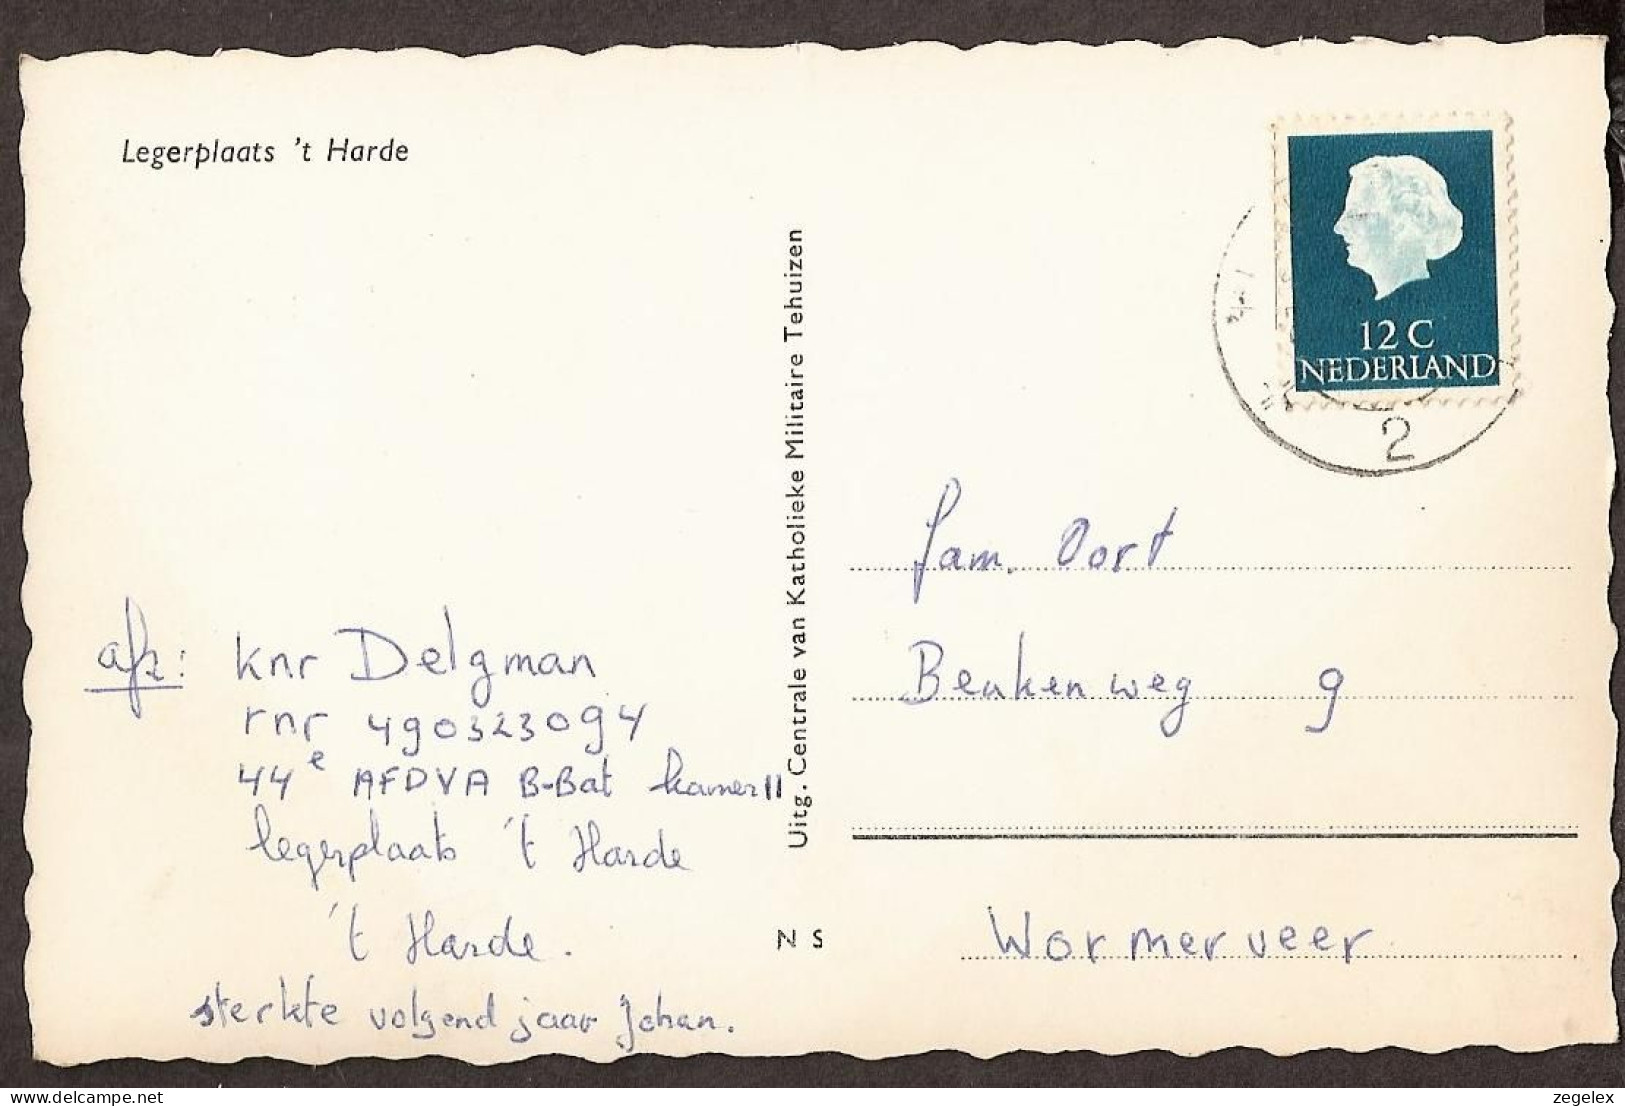 Legerplaats 't Harde
12 C
NEDERLAND
2
Uitg. Centrale van Katholieke Militaire Tehuizen
fam. Oort
Beukenweg 9
Wormerveer
N S
afz: knr Delgman
rnr 490323094
44e AFDVA B-Bat kamer 11
legerplaats 't Harde
't Harde.
sterkte volgend jaar Johan.
delcampe.net
zegelex